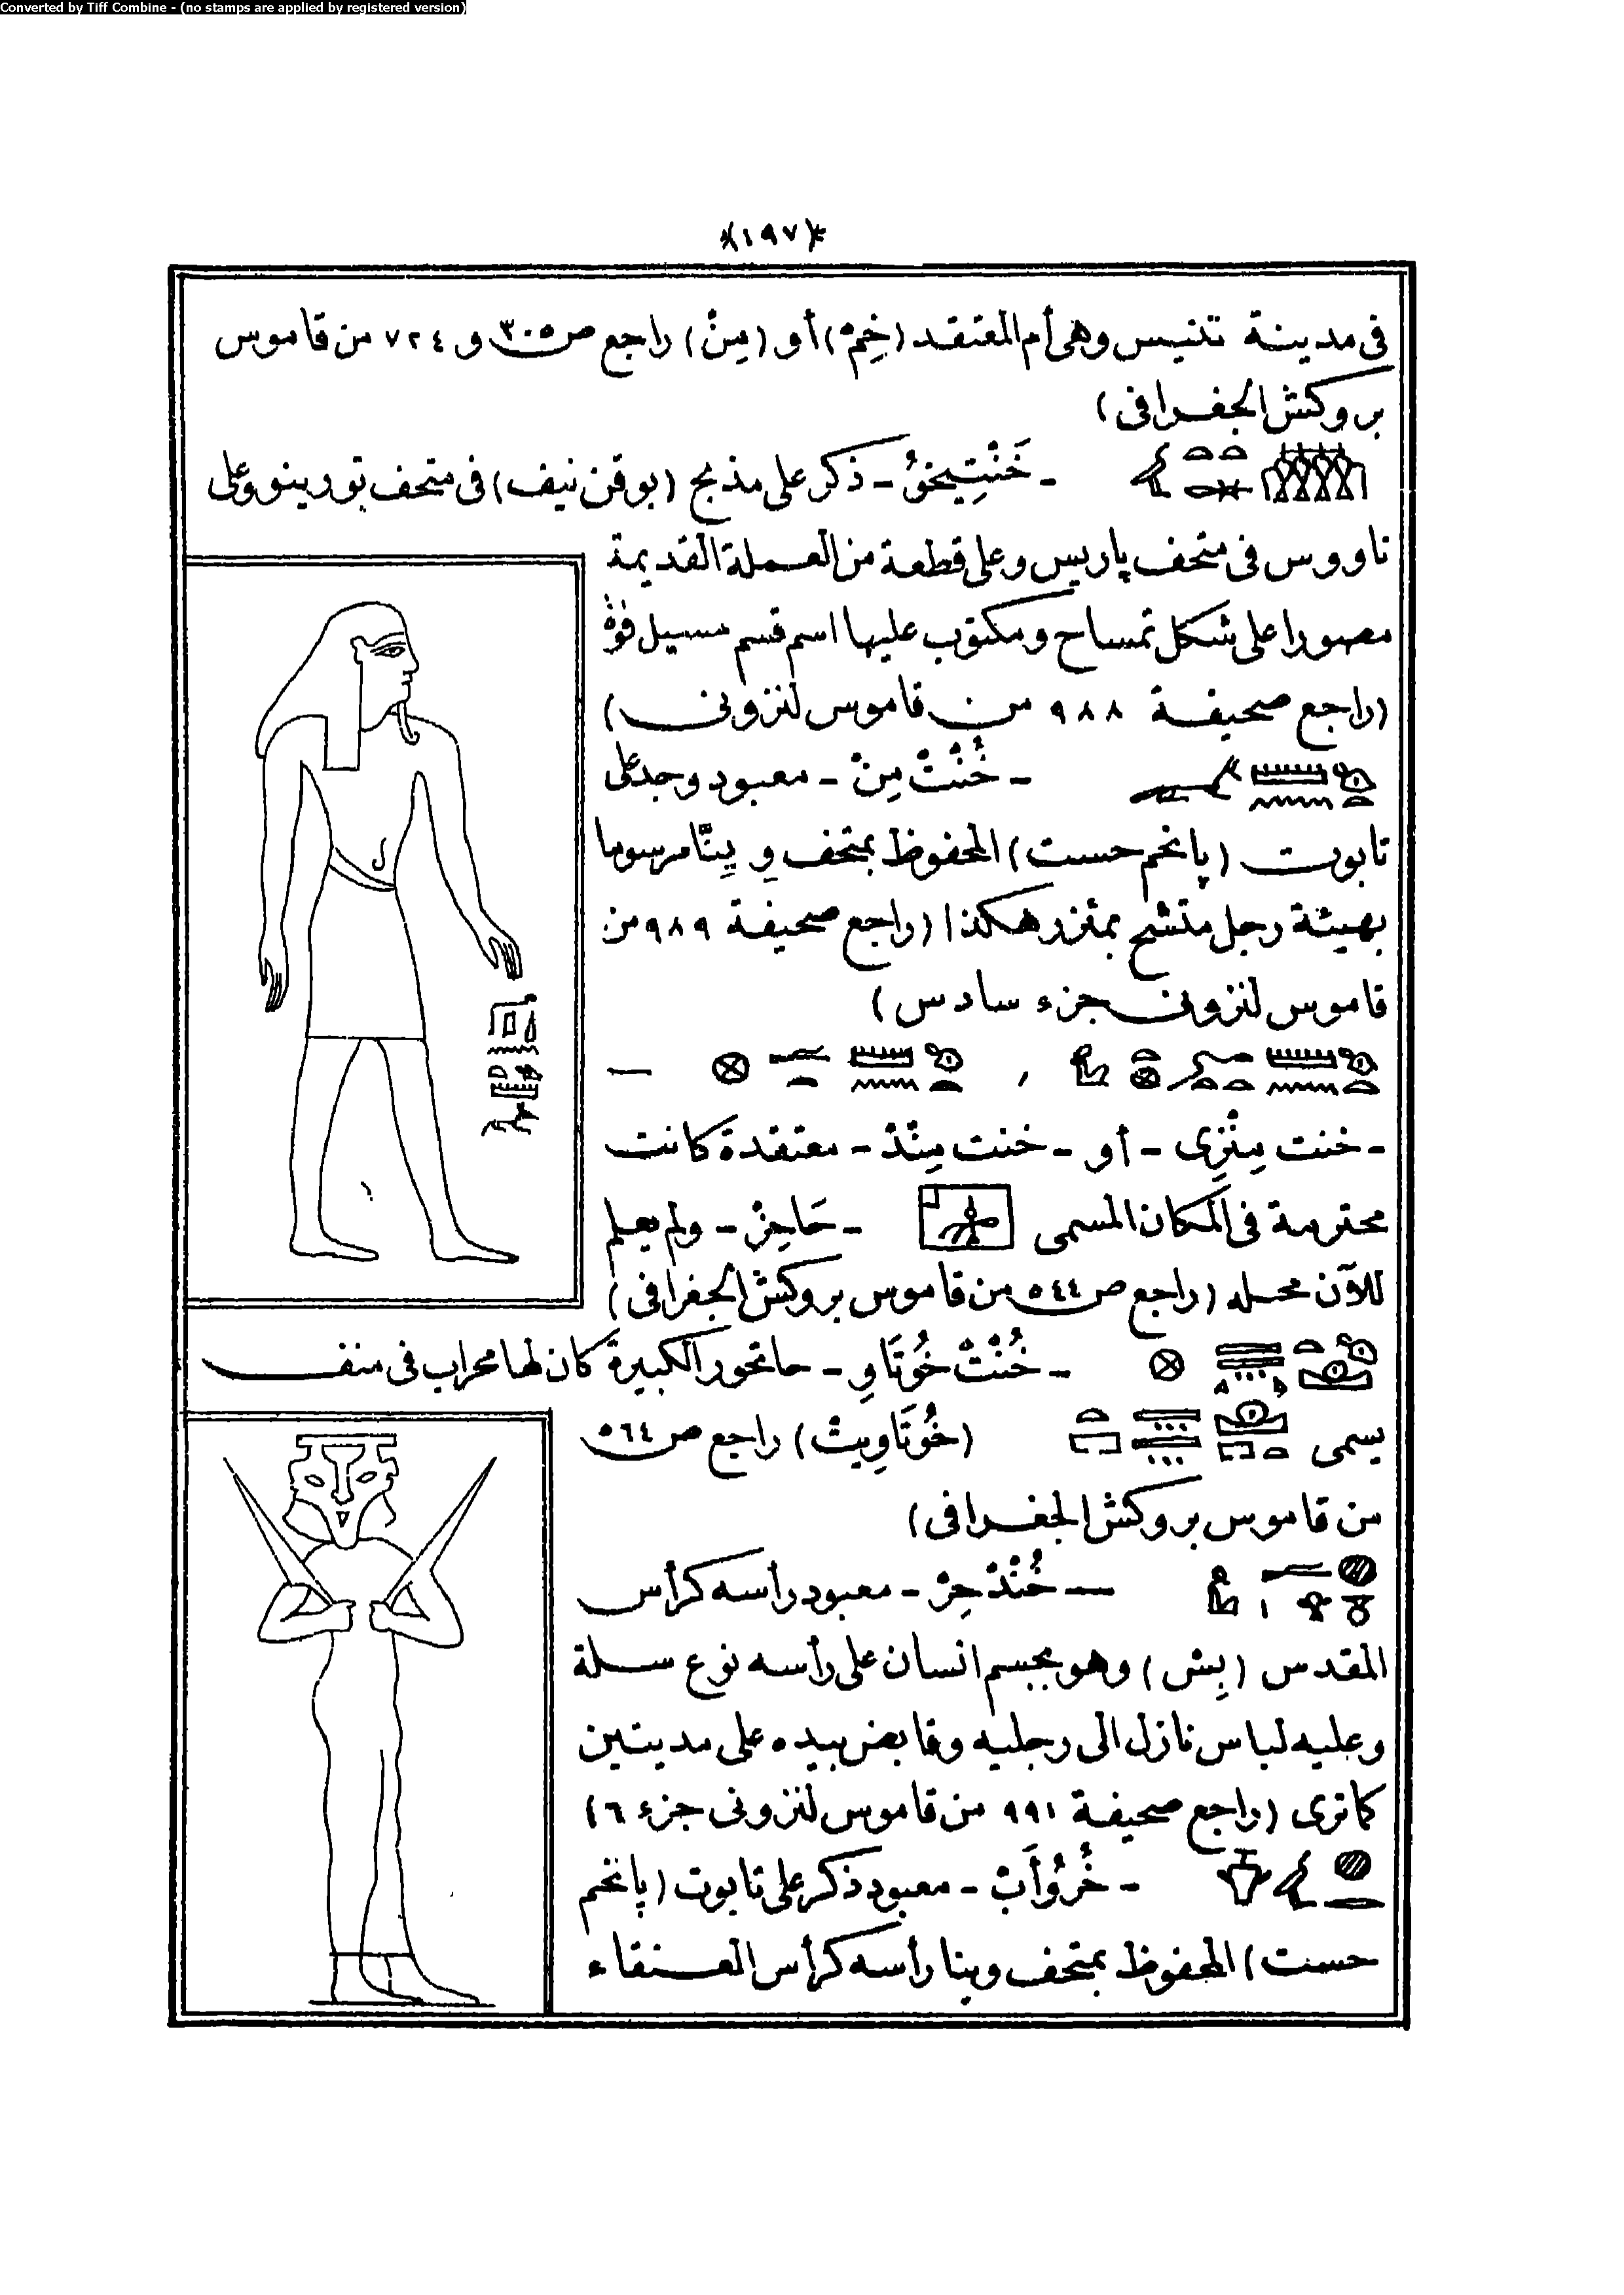 Converted by Tiff Combine - (no stamps are applied by registered version)
﴿١٩٧﴾
فى مدينة تنيس وهى أم المعتقد (خِمْ) أو (مِنْ) راجع ص ٣٠٥ و ٧٢٤ من قاموس
بروكش الجغرافى)
- خَنْتِيخَقُ - ذكر على مذبح (بوقرن نيف) فى متحف تورينو وعلى
ناووس فى متحف پاريس وعلى قطعة من العملة القديمة
مصورا على شكل تمساح ومكتوب عليها اسم قسم مسيل فوّة
(راجع صحيفة ٩٨٨ من قاموس لنزونى)
- خُنْتْ مِنْ - معبود وجد على
تابوت (پانخم حست) المحفوظ بمتحف وِيِنّا مرسوما
بهيئة رجل متشح بمئزر هكذا (راجع صحيفة ٩٨٩ من
قاموس لنزونى جزء سادس)
،
- خنت مِنْزِى - أو - خنت مِنْدْ - معتقدة كانت
محترمة فى المكان المسمى - حَاحِزْ - ولم يعلم
للآن محله (راجع ص ٥٤٤ من قاموس بروكش الجغرافى)
- خُنْتْ خُوتَاوِ - حاتحور الكبيرة كان لها محراب فى منف
يسمى (خُوتَاوِيتْ) راجع ص ٥٦٤
من قاموس بروكش الجغرافى)
- خُنْدْ حِرْ - معبود رأسه كرأس
المقدس (بِش) وهو بجسم انسان على رأسه نوع سلة
وعليه لباس نازل الى رجليه وقابض بيده على مديتين
كما ترى (راجع صحيفة ٩٩١ من قاموس لنزونى جزء ٦)
- خُرُوأَبْ - معبود ذكر على تابوت (پانخم
حست) المحفوظ بمتحف وينا رأسه كرأس العنقاء